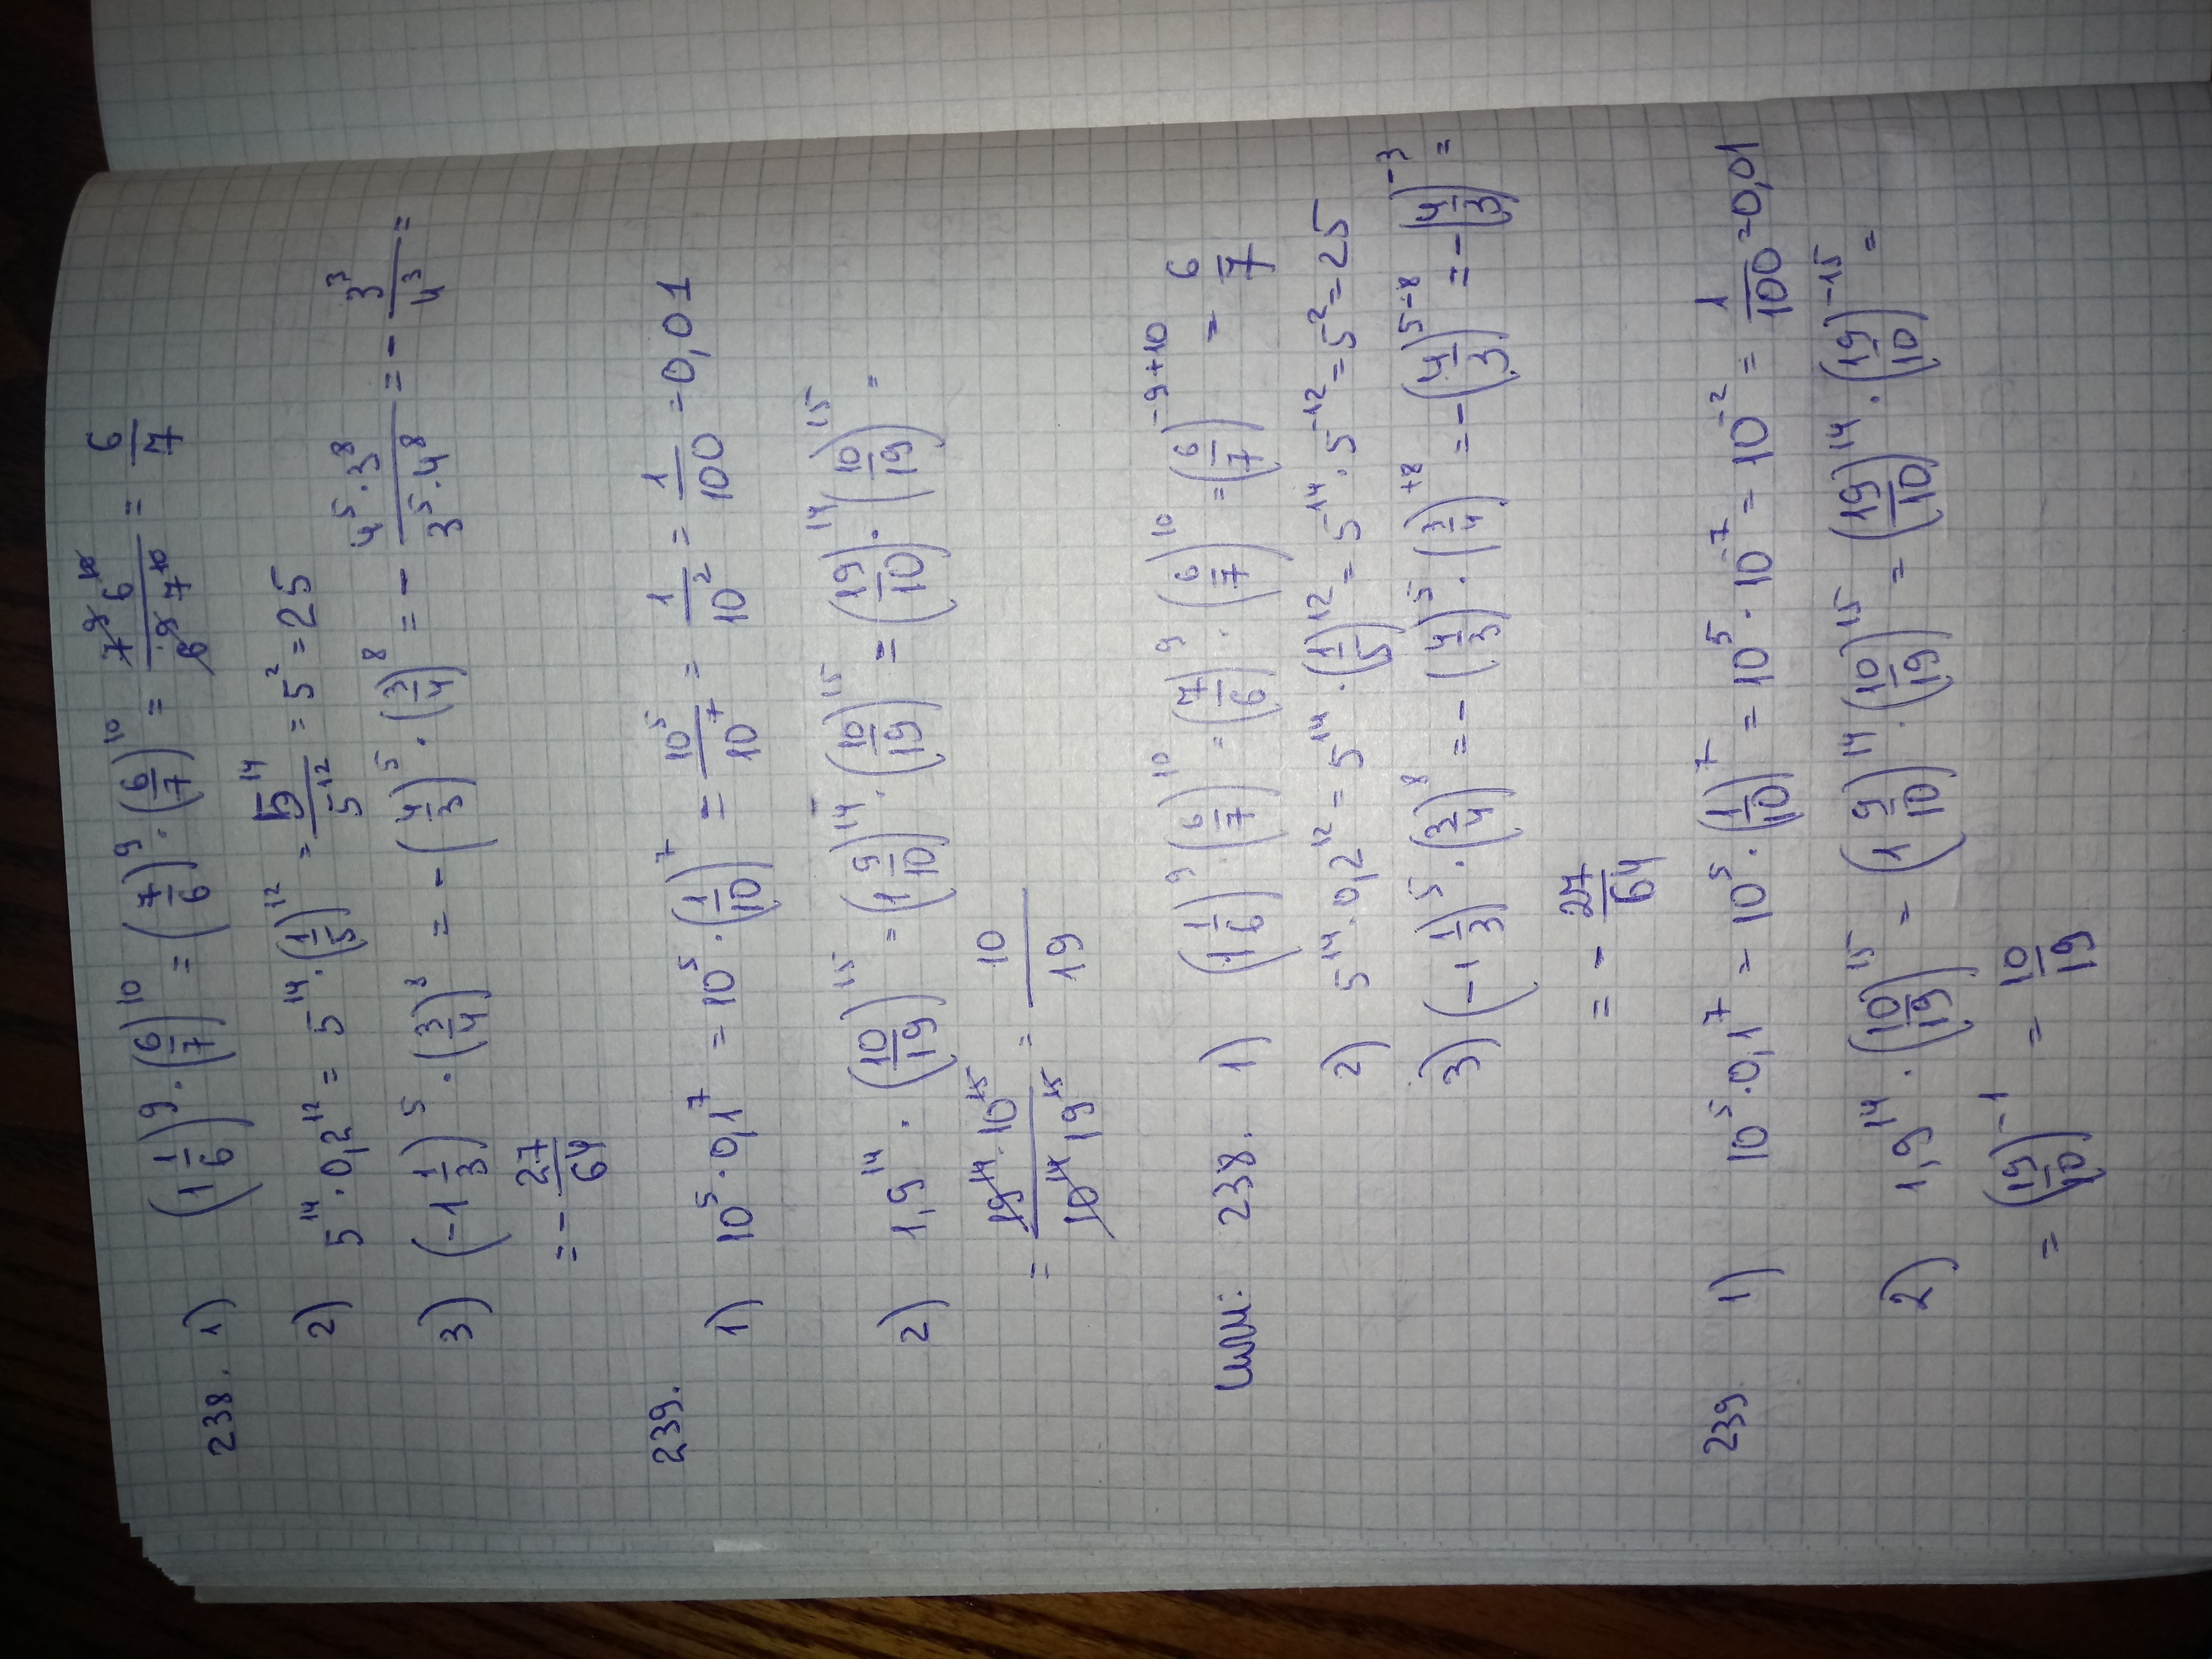 238. 1) (1 1/6)^9 · (6/7)^10 = (7/6)^9 · (6/7)^10 = 7^9 6^10 / 6^9 7^10 = 6/7
2) 5^14 · 0,2^12 = 5^14 · (1/5)^12 = 5^14/5^12 = 5^2 = 25
3) (-1 1/3)^5 · (3/4)^8 = - (4/3)^5 · (3/4)^8 = - 4^5·3^8 / 3^5·4^8 = - 3^3/4^3 =
= - 27/64
239.
1) 10^5 · 0,1^7 = 10^5 · (1/10)^7 = 10^5/10^7 = 1/10^2 = 1/100 = 0,01
2) 1,9^14 · (10/19)^15 = (1 9/10)^14 · (10/19)^15 = (19/10)^14 · (10/19)^15 =
= 19^14 · 10^15 / 10^14 19^15 = 10/19
или: 238. 1) (1 1/6)^9 · (6/7)^10 = (7/6)^9 · (6/7)^10 = (6/7)^-9+10 = 6/7
2) 5^14 · 0,2^12 = 5^14 · (1/5)^12 = 5^14 · 5^-12 = 5^2 = 25
3) (-1 1/3)^5 · (3/4)^8 = - (4/3)^5 · (3/4)^+8 = - (4/3)^5-8 = - (4/3)^-3 =
= - 27/64
239 1) 10^5 · 0,1^7 = 10^5 · (1/10)^7 = 10^5 · 10^-7 = 10^-2 = 1/100 = 0,01
2) 1,9^14 · (10/19)^15 = (1 9/10)^14 · (10/19)^15 = (19/10)^14 · (19/10)^-15 =
= (19/10)^-1 = 10/19